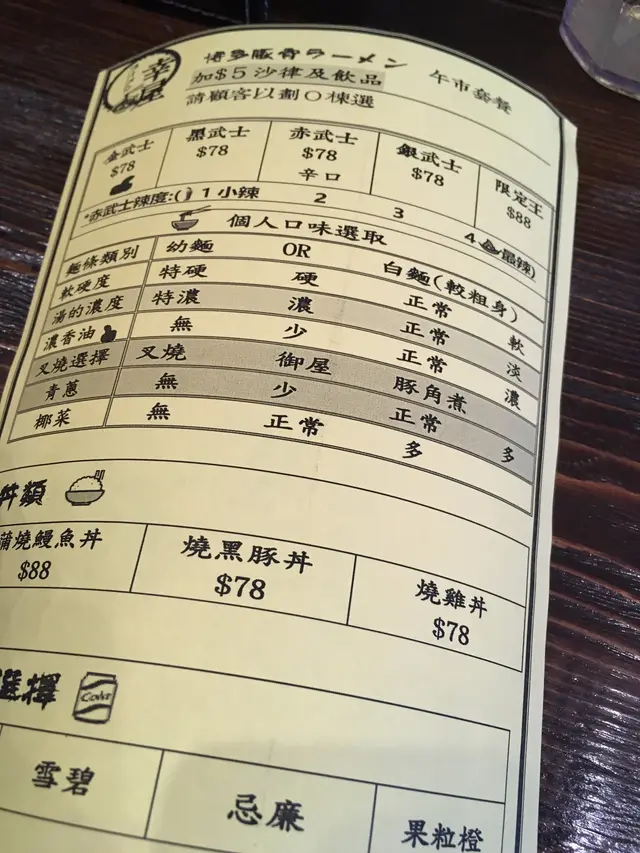 幸屋
博多豚骨ラーメン 午市套餐
加$5沙律及飲品
請顧客以劃O揀選
金武士 黑武士 赤武士 銀武士 限定王
$78 $78 $78 $78 $88
辛口
*赤武士辣度:( 1小辣 2 3 4 最辣)
個人口味選取
麵條類別 幼麵 OR 白麵(較粗身)
軟硬度 特硬 硬 正常 軟
湯的濃度 特濃 濃 正常 淡
濃香油 無 少 正常 濃
叉燒選擇 叉燒 御屋 豚角煮
青蔥 無 少 正常 多
椰菜 無 正常 多
丼類
蒲燒鰻魚丼 燒黑豚丼 燒雞丼
$88 $78 $78
選擇
雪碧 忌廉 果粒橙